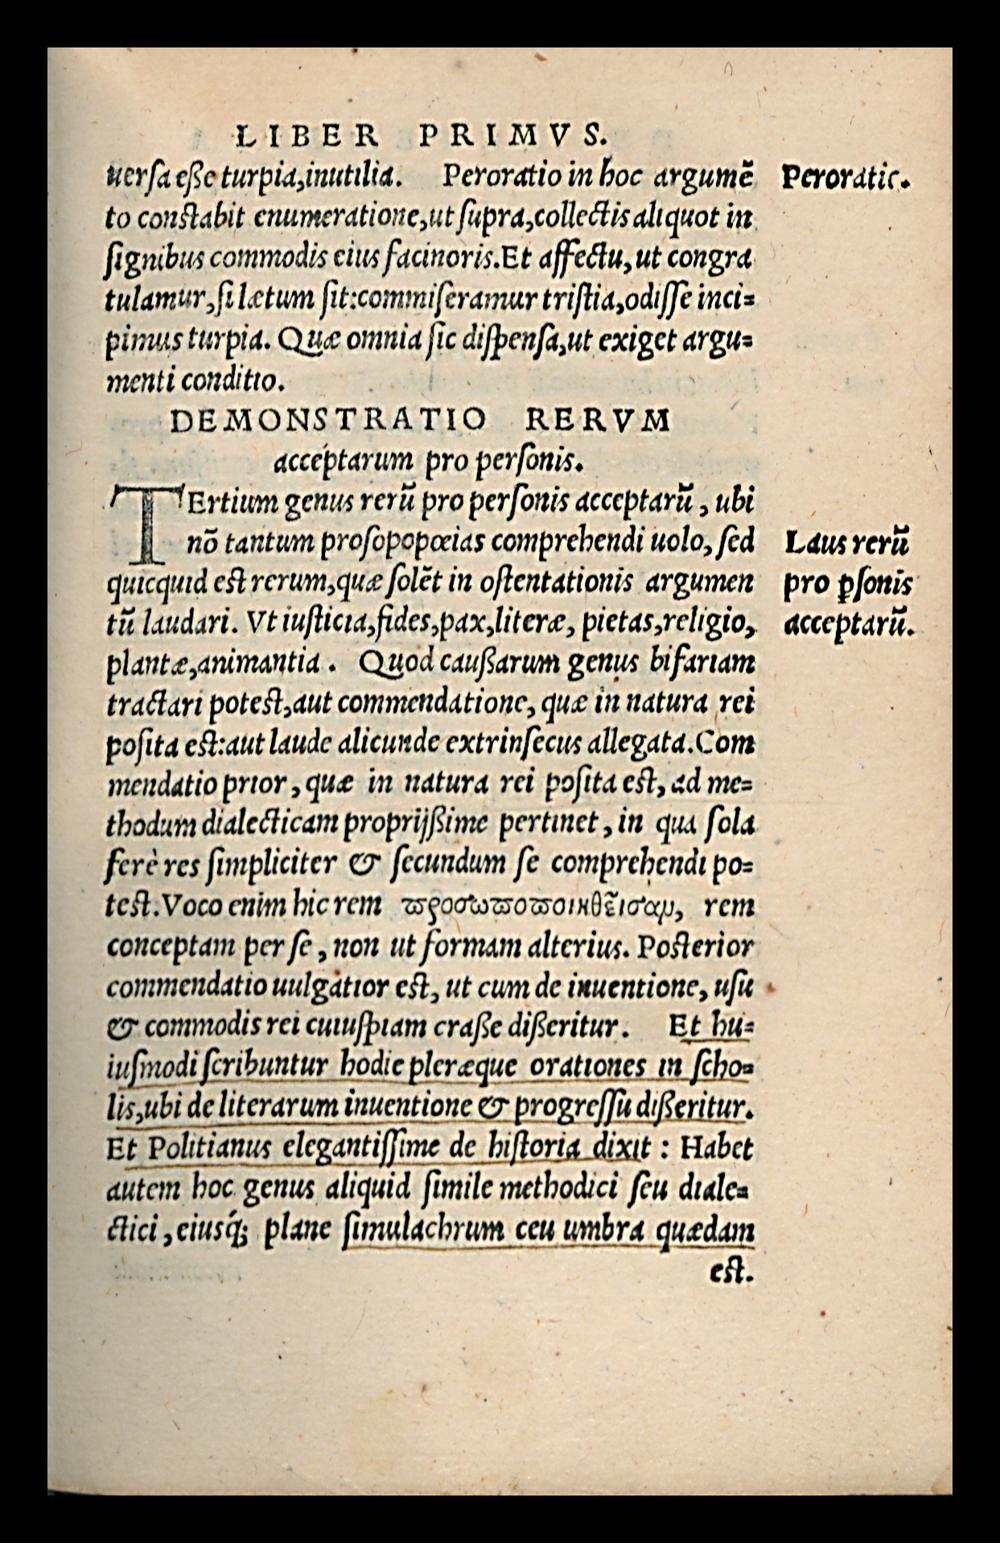 LIBER PRIMVS.
uersa eße turpia,inutilia. Peroratio in hoc argumẽ
Peroratic.
to constabit enumeratione,ut supra,collectis aliquot in
signibus commodis eius facinoris.Et affectu,ut congra
tulamur,si lætum sit:commiseramur tristia,odisse inci=
pimus turpia. Quæ omnia sic dispensa,ut exiget argu=
menti conditio.
DEMONSTRATIO RERVM
acceptarum pro personis.
TErtium genus rerũ pro personis acceptarũ, ubi
nõ tantum prosopopœias comprehendi uolo, sed
Laus rerũ
quicquid est rerum,quæ solẽt in ostentationis argumen
pro ꝑsonis
tũ laudari. Vt iusticia,fides,pax,literæ, pietas,religio,
acceptarũ.
plantæ,animantia. Quod caußarum genus bifariam
tractari potest,aut commendatione, quæ in natura rei
posita est:aut laude alicunde extrinsecus allegata.Com
mendatio prior, quæ in natura rei posita est, ad me=
thodum dialecticam proprijßime pertinet, in qua sola
ferè res simpliciter & secundum se comprehendi po=
test.Voco enim hic rem ϖροσωϖοϖοιηθεῖσαμ, rem
conceptam per se, non ut formam alterius. Posterior
commendatio uulgatior est, ut cum de inuentione, usu
& commodis rei cuiuspiam craße dißeritur. Et hu=
iusmodi scribuntur hodie pleræque orationes in scho=
lis,ubi de literarum inuentione & progressu dißeritur.
Et Politianus elegantissime de historia dixit: Habet
autem hoc genus aliquid simile methodici seu diale=
ctici, eiusq́; plane simulachrum ceu umbra quædam
est.